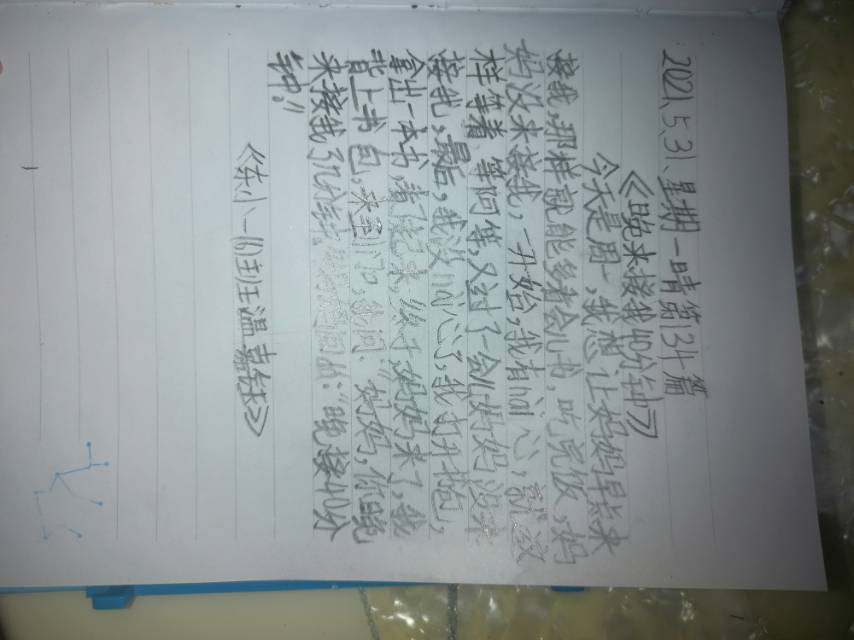 2021.5.31.星期一晴第134篇
《晚来接我40分钟》
今天是周一,我想让妈妈早点来
接我,那样就能多看会儿书,吃完饭,妈
妈没来接我,一开始,我有耐心,就这
样等着,等啊等,又过了一会儿妈妈没来
接我,最后,我没耐心了,我打开书包,
拿出一本书,看起来,终于,妈妈来了,我
背上书包,来到门口,我问:“妈妈,你晚
来接我了几分钟?”妈妈回答:“晚接40分
钟。”
温嘉钰》